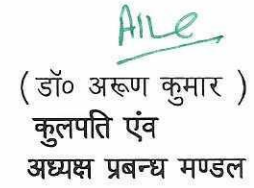 ( डॉ० अरूण कुमार )
कुलपति एंव
अध्यक्ष प्रबन्ध मण्डल